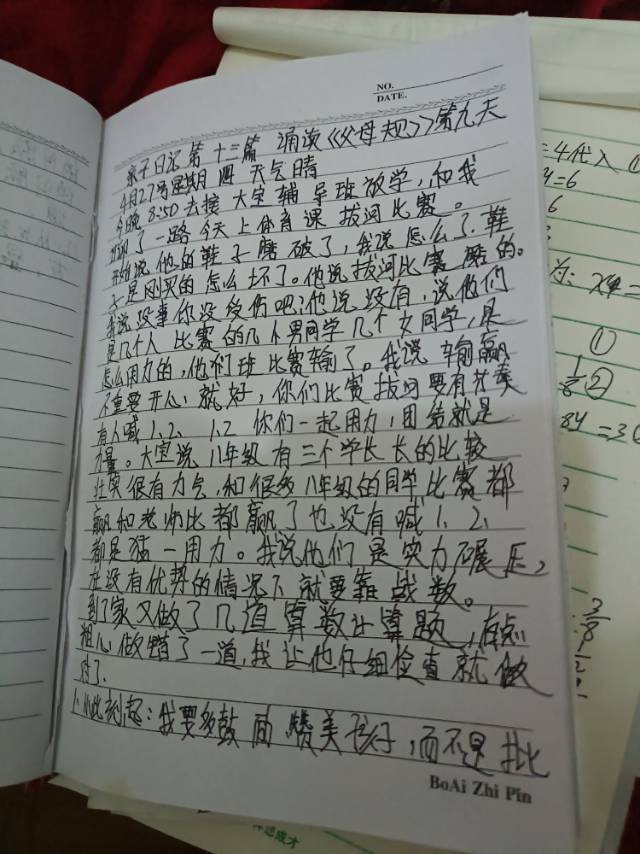 NO.
DATE.
亲子日记 第十三篇 诵读《父母规》第九天
4月27号 星期四 天气晴
今晚8:50去接大宝辅导班放学,和我
聊了一路今天上体育课拔河比赛。
开始说他的鞋子磨破了,我说怎么了.鞋
子是刚买的怎么坏了。他说拔河比赛磨的。
我说没事你没受伤吧?他说没有,说他们
是几个人比赛的几个男同学几个女同学,是
怎么用力的,他们班比赛输了。我说输赢
不重要开心就好,你们比赛拔河要有节奏
有人喊1、2、1、2你们一起用力,团结就是
力量。大宝说八年级有三个学长长的比较
壮实很有力气,和很多八年级的同学比赛都
赢和老师比都赢了也没有喊1、2、
都是猛一用力。我说他们是实力碾压,
在没有优势的情况下就要靠战数。
到了家又做了几道算数计算题,有点
粗心做错了一道,我让他仔细检查就做
对了.
从此刻起:我要多鼓励赞美孩子,而不是批
BoAi Zhi Pin
=4代入①
y=6
6
①
②
84=3